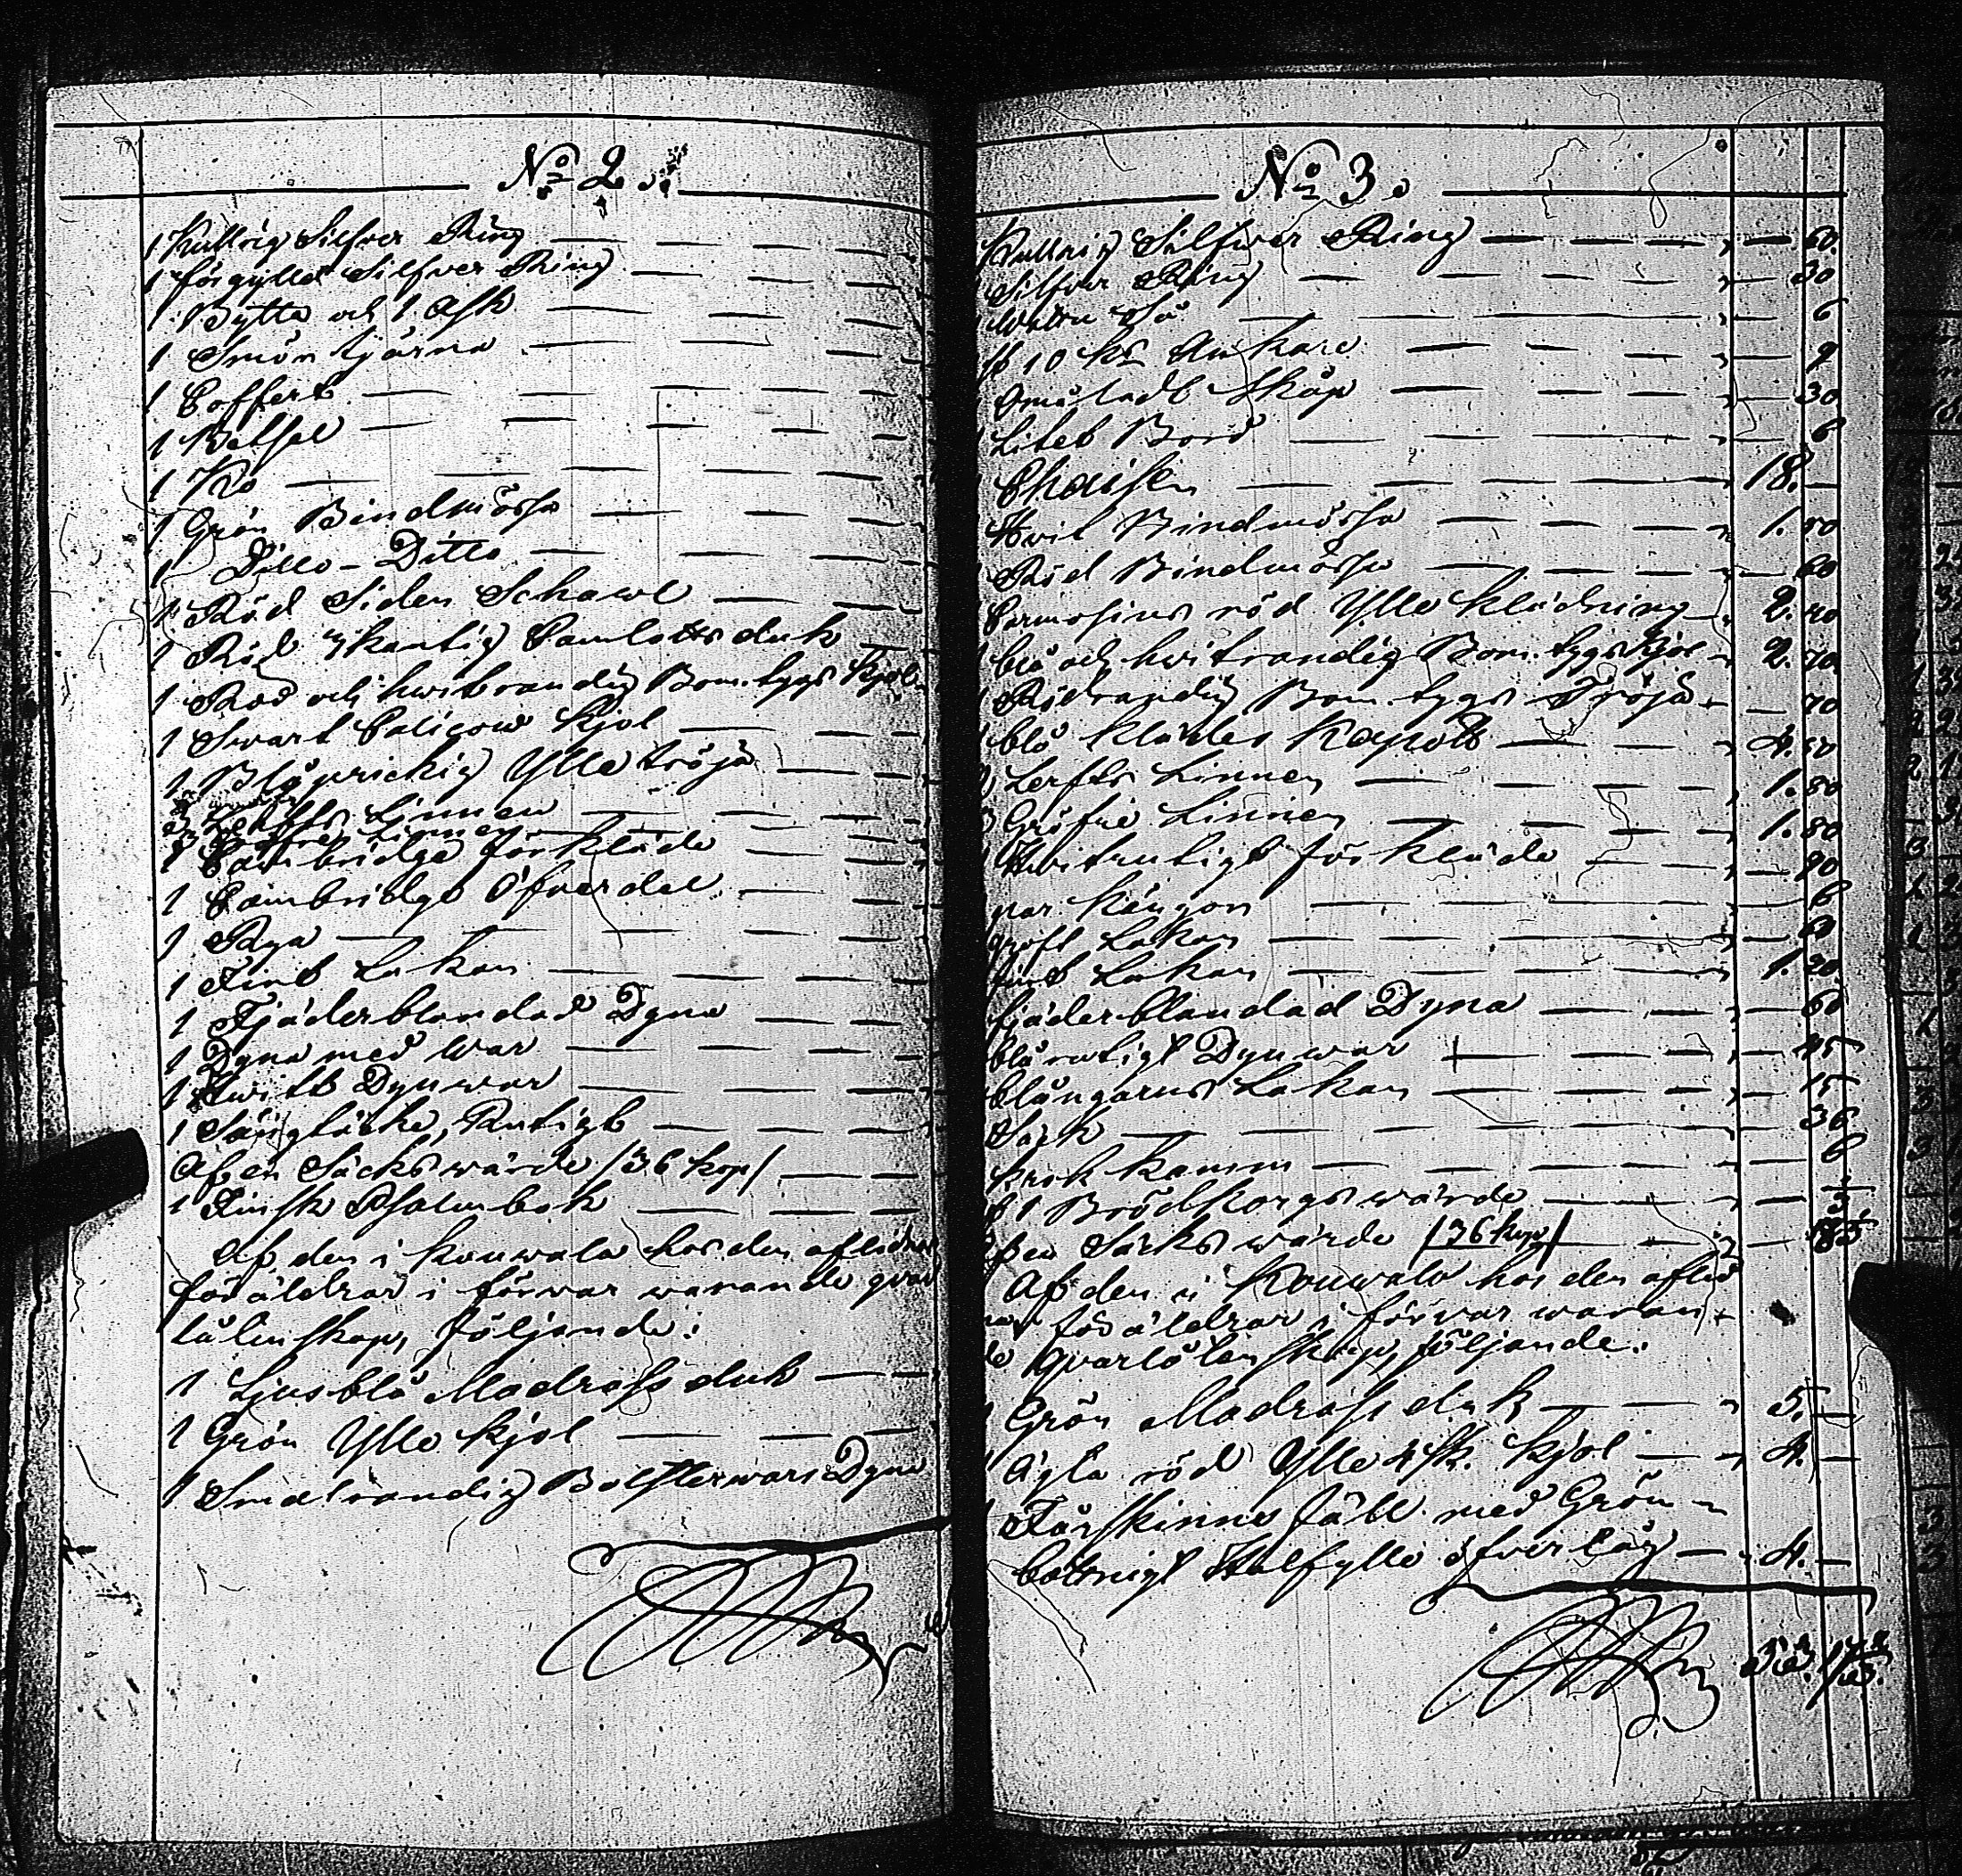 No 2.
1 Kullrig Silfver Ring
1 förgylld Silfver Ring
1 Bytta och 1 Ask
1 Smör kjärna
1 Coffert
1 Betsel
1 Ko
1 Grön Bindmössa
1 Ditto - Ditto
1 Röd Siden Schawl
1 Röd 3kantig Camlotts duk
1 Röd och hwitrandig Bom.tygs Kjol
1 Swart Calicow Kjol
1 Blåprickig Ylle tröja
3 Lerfts Linnen
3 Linnen
1 Cambridge förkläde
1 Cambridge Öfverdel
1 Rya
1 Fint Lakan
1 Fjäderblandad Dyna
1 Dyna med War
1 Hwitt Dynwar
1 Sängtäcke, Rutigt
Af en Säcks wärde /36 kop/
1 Finsk Psalmbok
Af den i Kouwala hos den aflidnes
föräldrar i förvar warande qvar
låtenskap, följande:
1 Ljusblå Madrass duk
1 Grön Ylle Kjol
1 Smalrandig Bolsterwars Dyna
No 3.
Kullrig Silfwer Ring 60.
Silfver Ring 30
Watten Så 6
10 Ankare 9
Omåladt Skåp 30
Litet Bord 6
Chaisen 18.
Hvit Bindmössa 1. 50
Röd Bindmössa 60
Carmosins röd Ylle Klädning 2. 40
blå och hwitrandig Bom.tygs Kjol 2. 70.
Rödrandig Bom.tygs Tröja 70
blå Klädes Kapott 4. 50
Lerfts Linnen 1. 80
3 Gröfre Linnen 1. 80
Hvitrutigt förkläde 90
par Kängor 6
groft Lakan 60
fint Lakan 1. 20.
fjäderblandad Dyna 60
blårutigt Dynwar 45
Blångarns Lakan 15
Säck 36
Krok Kamm 6
1 Brödkorgs wärde
en Säcks wärde /36 kop/
Af den i Kouwala hos den aflid
föräldrar i förvar waran
de qvarlåtenskap, följande:
1 Grön Madrass duk 5.
1 Ägta röd Ylle Kjol 4.
1 Fårskinns fäll med Grön
botnigt Halfylle öfverlag 4.